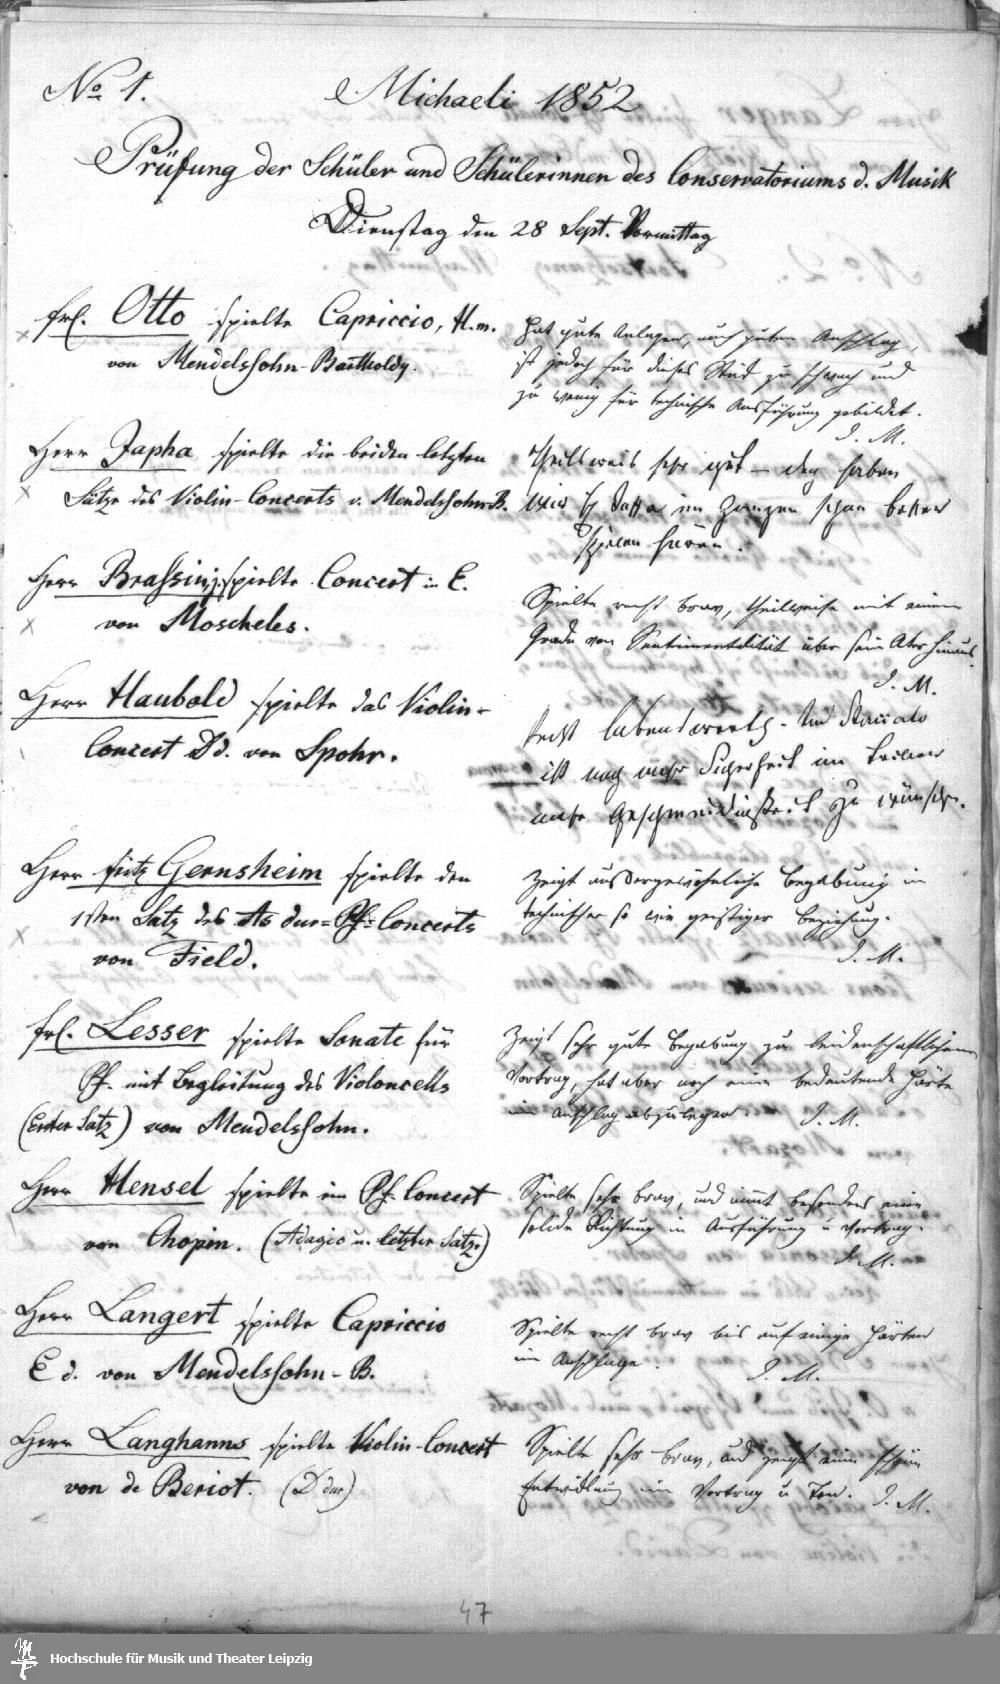 No 1.
Michaeli 1852
Prüfung der Schüler und Schülerinnen des Conservatoriums d. Musik
Dienstag den 28 Sept. Vormittag
Frl. Otto spielte Capriccio, H.m.
von Mendelssohn-Bartholdy.
Hat gute Anlagen, auch guten Anschlag,
ist jedoch für dieses Stück zu schwach und
zu wenig für technische Ausführung gebildet.
I. M.
Herr Japha spielte die beiden letzten
Sätze des Violin-Concerts v. Mendelssohn-B.
Theilweis sehr gut – doch haben
wir im Ganzen schon besser
spielen hören.
Herr Brassin j. spielte Concert in E.
von Moscheles.
Spielte recht brav, theilweise mit einem
Grade von Sentimentalität über sein Alter hinaus.
I. M.
Herr Haubold spielte das Violin-
Concert Dd. von Spohr.
Recht lobenswerth. Im Staccato
ist noch mehr Sicherheit im Triller
mehr Geschmeidigkeit zu wünschen.
Herr Fritz Gernsheim spielte den
1sten Satz des As dur-Pf-Concerts
von Field.
Zeigt außergewöhnliche Begabung in
technischer so wie geistiger Beziehung.
I. M.
Frl. Lesser spielte Sonate für
Pf. mit Begleitung des Violoncells
(Erster Satz) von Mendelssohn.
Zeigt sehr gute Begabung zu leidenschaftlichem
Vortrag, hat aber noch eine bedeutende Härte
im Anschlag abzulegen.
I. M.
Herr Hensel spielte im Pf-Concert
von Chopin. (Adagio u. letzter Satz)
Spielte sehr brav, und nimmt besonders eine
solide Richtung in Ausführung u Vortrag.
I. M.
Herr Langert spielte Capriccio
E d. von Mendelssohn-B.
Spielte recht brav bis auf einige Härten
im Anschlage.
I. M.
Herr Langhanns spielte Violin-Concert
von de Beriot. (D dur)
Spielte sehr brav, und zeigt eine schöne
Entwicklung im Vortrag u Ton. I. M.
47
Hochschule für Musik und Theater Leipzig